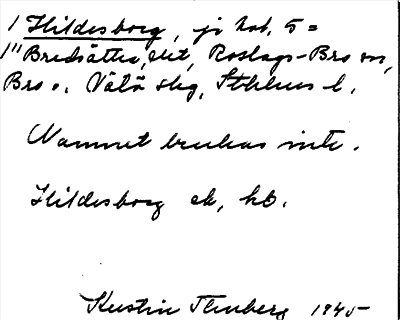 1 Hildesborg, jr hot. 5 =
1" Bredsättra, det, Roslags-Bro sn,
Bro o. Vätö skg, Sthlms l.
Namnet brukas inte.
Hildesborg ek, kb.
Kerstin Thenberg 1945